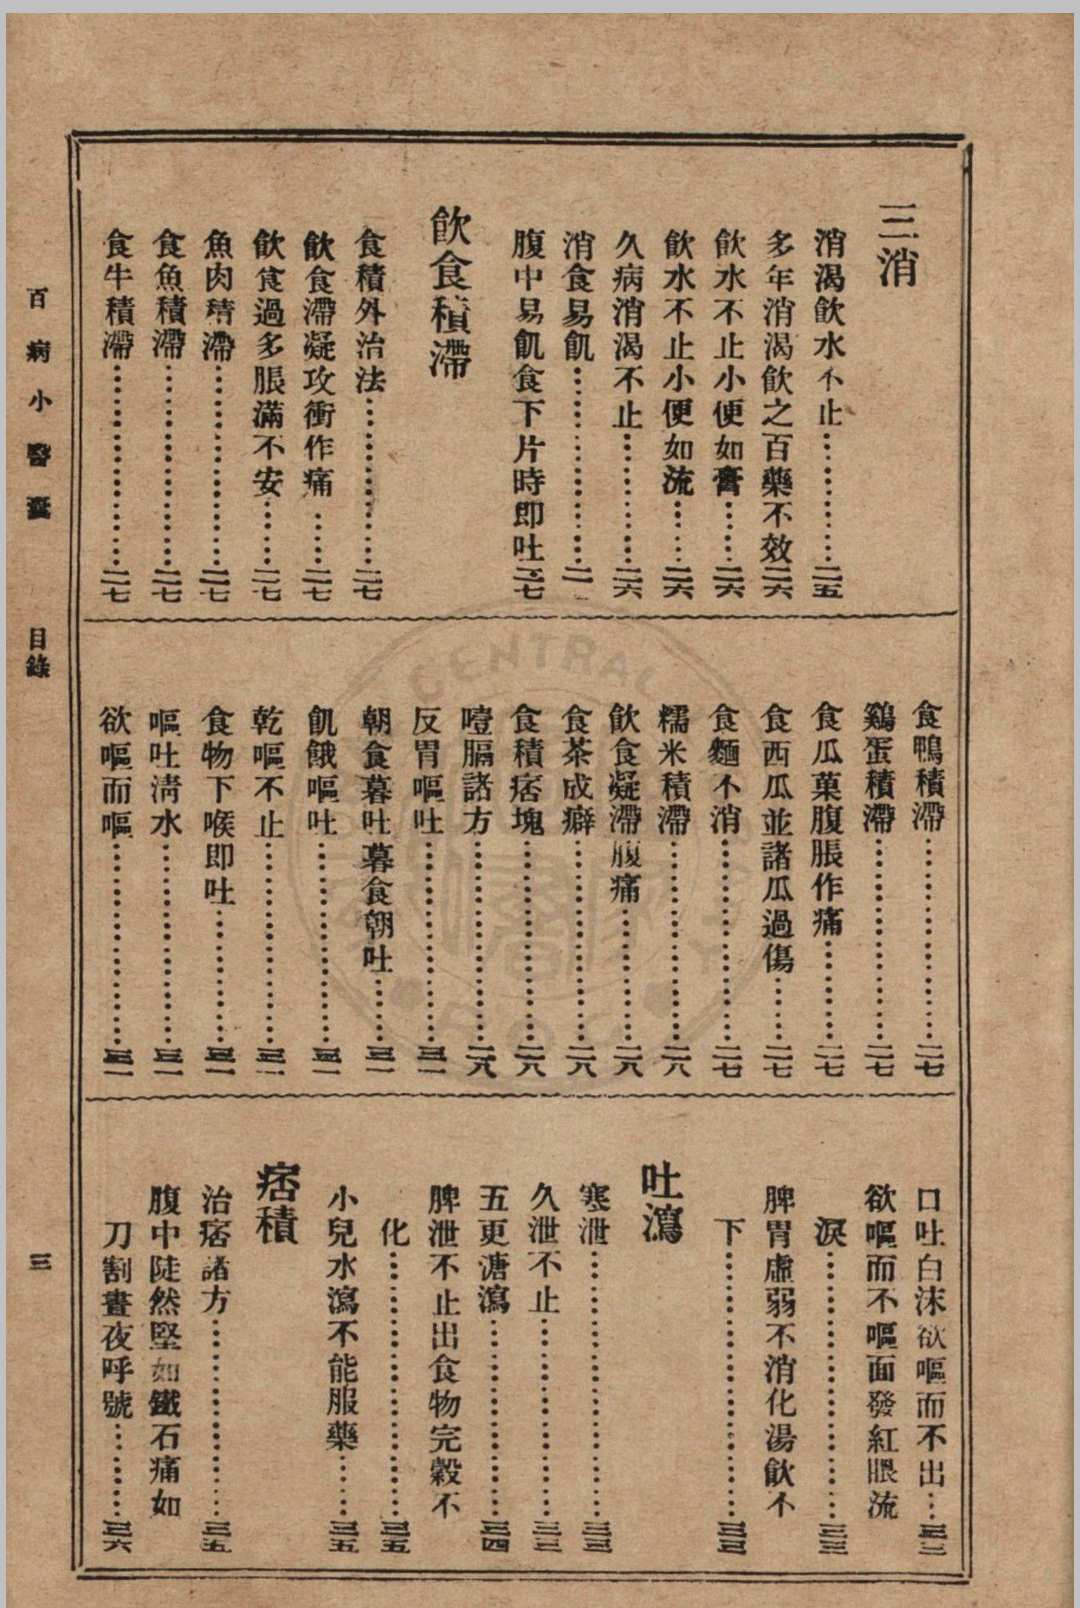 三消
消渴飲水不止……二五
多年消渴飲之百藥不效二六
飲水不止小便如膏……二六
飲水不止小便如流……二六
久病消渴不止……二六
消食易飢……二
腹中易飢食下片時即吐…二七
飲食積滯
食積外治法……二七
飲食滯凝攻衝作痛……二七
飲食過多脹滿不安……二七
魚肉積滯……二七
食魚積滯……二七
食牛積滯……二七
食鴨積滯……二七
鷄蛋積滯……二七
食瓜菓腹脹作痛……二七
食西瓜並諸瓜過傷……二七
食麵不消……二七
糯米積滯……二八
飲食凝滯腹痛……二八
食茶成癖……二八
食積痞塊……二八
噎膈諸方……二八
反胃嘔吐……三一
朝食暮吐暮食朝吐……三一
飢餓嘔吐……三一
乾嘔不止……三一
食物下喉即吐……三一
嘔吐淸水……三一
欲嘔而嘔……三一
口吐白沫欲嘔而不出…三二
欲嘔而不嘔面發紅眼流
淚……三三
脾胃虛弱不消化湯飲不
下……三三
吐瀉
寒泄……三三
久泄不止……三三
五更溏瀉……三四
脾泄不止出食物完穀不
化……三五
小兒水瀉不能服藥……三五
痞積
治痞諸方……三五
腹中陡然堅如鐵石痛如
刀割晝夜呼號……三六
百病小醫囊
目錄
三
CENTRAL